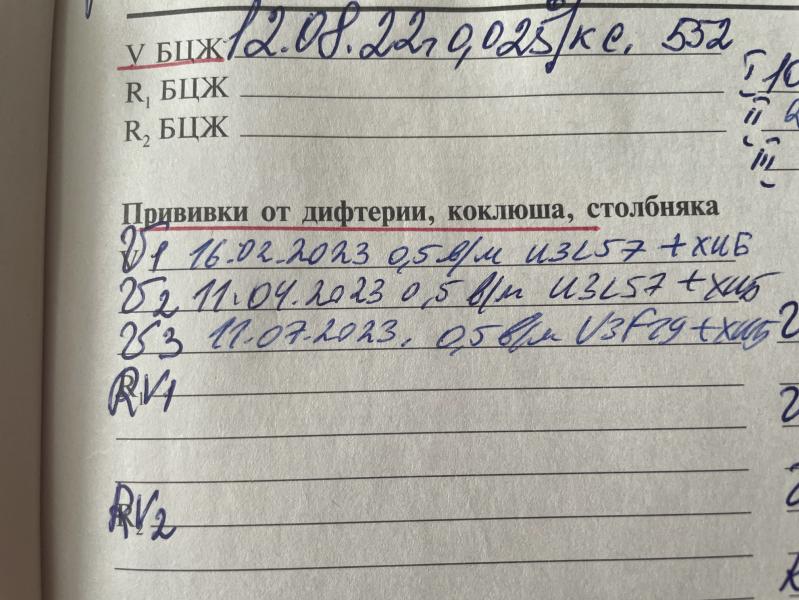 V БЦЖ 12.08.22г 0,025 в/к с. 552
R₁ БЦЖ
R₂ БЦЖ
I 10
II 2
III
Прививки от дифтерии, коклюша, столбняка
V1 16.02.2023 0,5 в/м U3L57 + ХИБ
V2 11.04.2023 0,5 в/м U3L57 + ХИБ
V3 11.07.2023. 0,5 в/м + ХИБ
RV1
RV2